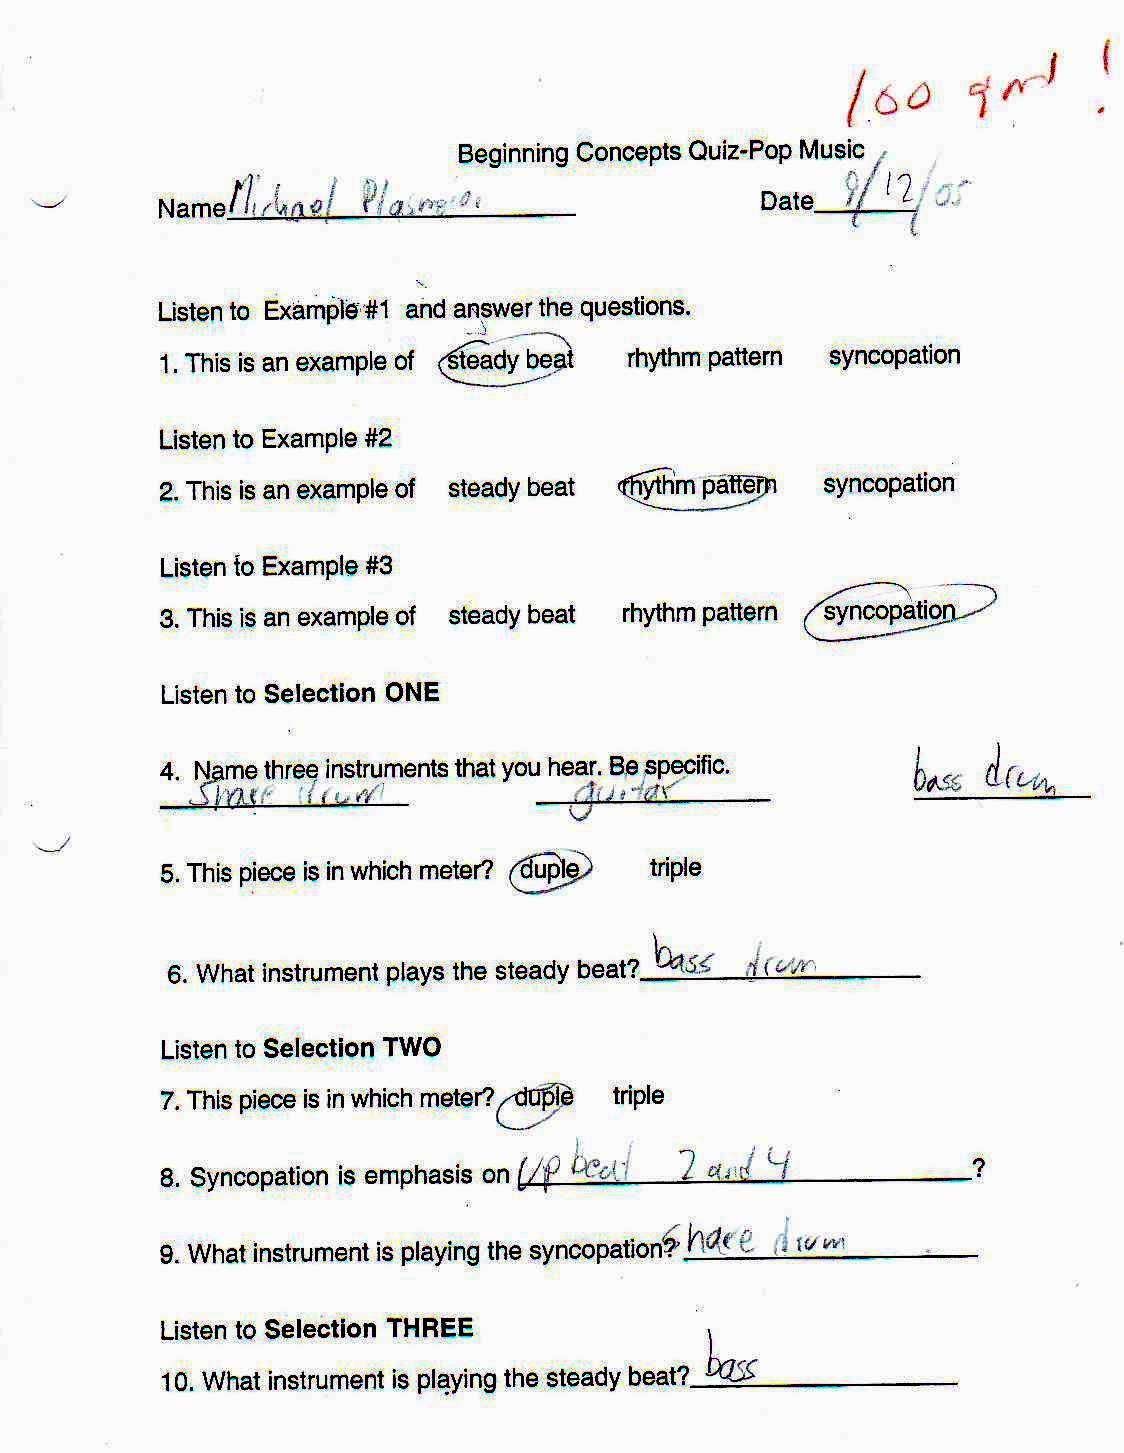 100 good!
Beginning Concepts Quiz-Pop Music
Name Michael Date 9/12/05
Listen to Example #1 and answer the questions.
1. This is an example of steady beat rhythm pattern syncopation
Listen to Example #2
2. This is an example of steady beat rhythm pattern syncopation
Listen to Example #3
3. This is an example of steady beat rhythm pattern syncopation
Listen to Selection ONE
4. Name three instruments that you hear. Be specific.
snare drum guitar bass drum
5. This piece is in which meter? duple triple
6. What instrument plays the steady beat? bass drum
Listen to Selection TWO
7. This piece is in which meter? duple triple
8. Syncopation is emphasis on Up beat 2 and 4 ?
9. What instrument is playing the syncopation? Snare drum
Listen to Selection THREE
10. What instrument is playing the steady beat? bass